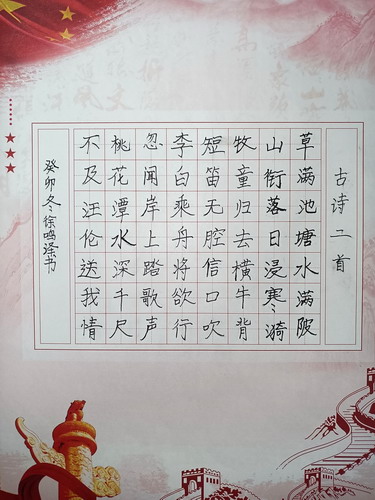 古诗二首
草满池塘水满陂
山衔落日浸寒漪
牧童归去横牛背
短笛无腔信口吹
李白乘舟将欲行
忽闻岸上踏歌声
桃花潭水深千尺
不及汪伦送我情
癸卯冬徐鸣泽书